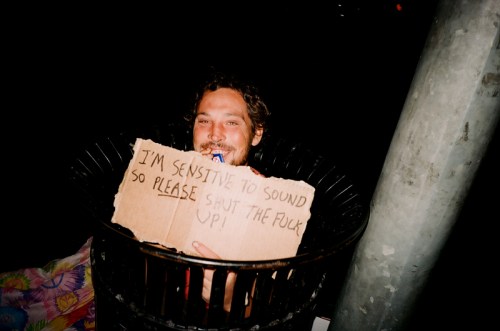 I'M SENSITVE TO SOUND
SO PLEASE SHUT THE FUCK
UP!